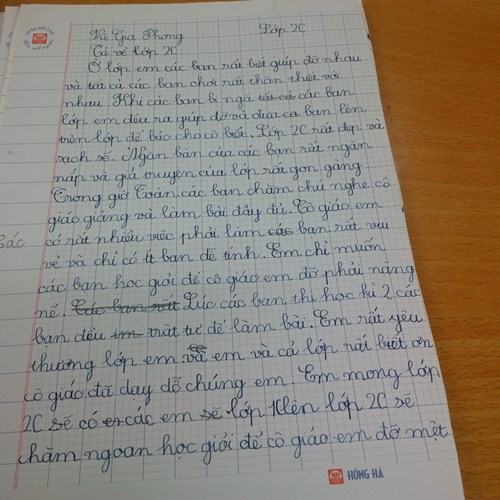 Vũ Gia Phong Lớp 2C
Tả về lớp 2C
Ở lớp em các bạn rất biết giúp đỡ nhau
và tất cả các bạn chơi rất thân thiết với
nhau. Khi các bạn bị ngã tất cả các bạn
lớp em đều ra giúp đỡ và đưa cả bạn lên
trên lớp để báo cho cô biết. Lớp 2C rất đẹp và
sạch sẽ. Ngăn bàn của các bạn rất ngăn
nắp và giá truyện của lớp rất gọn gàng
Trong giờ Toán các bạn chăm chú nghe cô
giáo giảng và làm bài đầy đủ. Cô giáo em
có rất nhiều việc phải làm các bạn rất vui
vẻ và chỉ có ít bạn để tính. Em chỉ muốn
các bạn học giỏi để cô giáo em đỡ phải nặng
nề. Các bạn rất Lúc các bạn thi học kì 2 các
bạn đều im trật tự để làm bài. Em rất yêu
thương lớp em và em và cả lớp rất biết ơn
cô giáo đã dạy dỗ chúng em. Em mong lớp
2C sẽ có em các em sẽ lớp 1 lên lớp 2C sẽ
chăm ngoan học giỏi để cô giáo em đỡ mệt
HỒNG HÀ